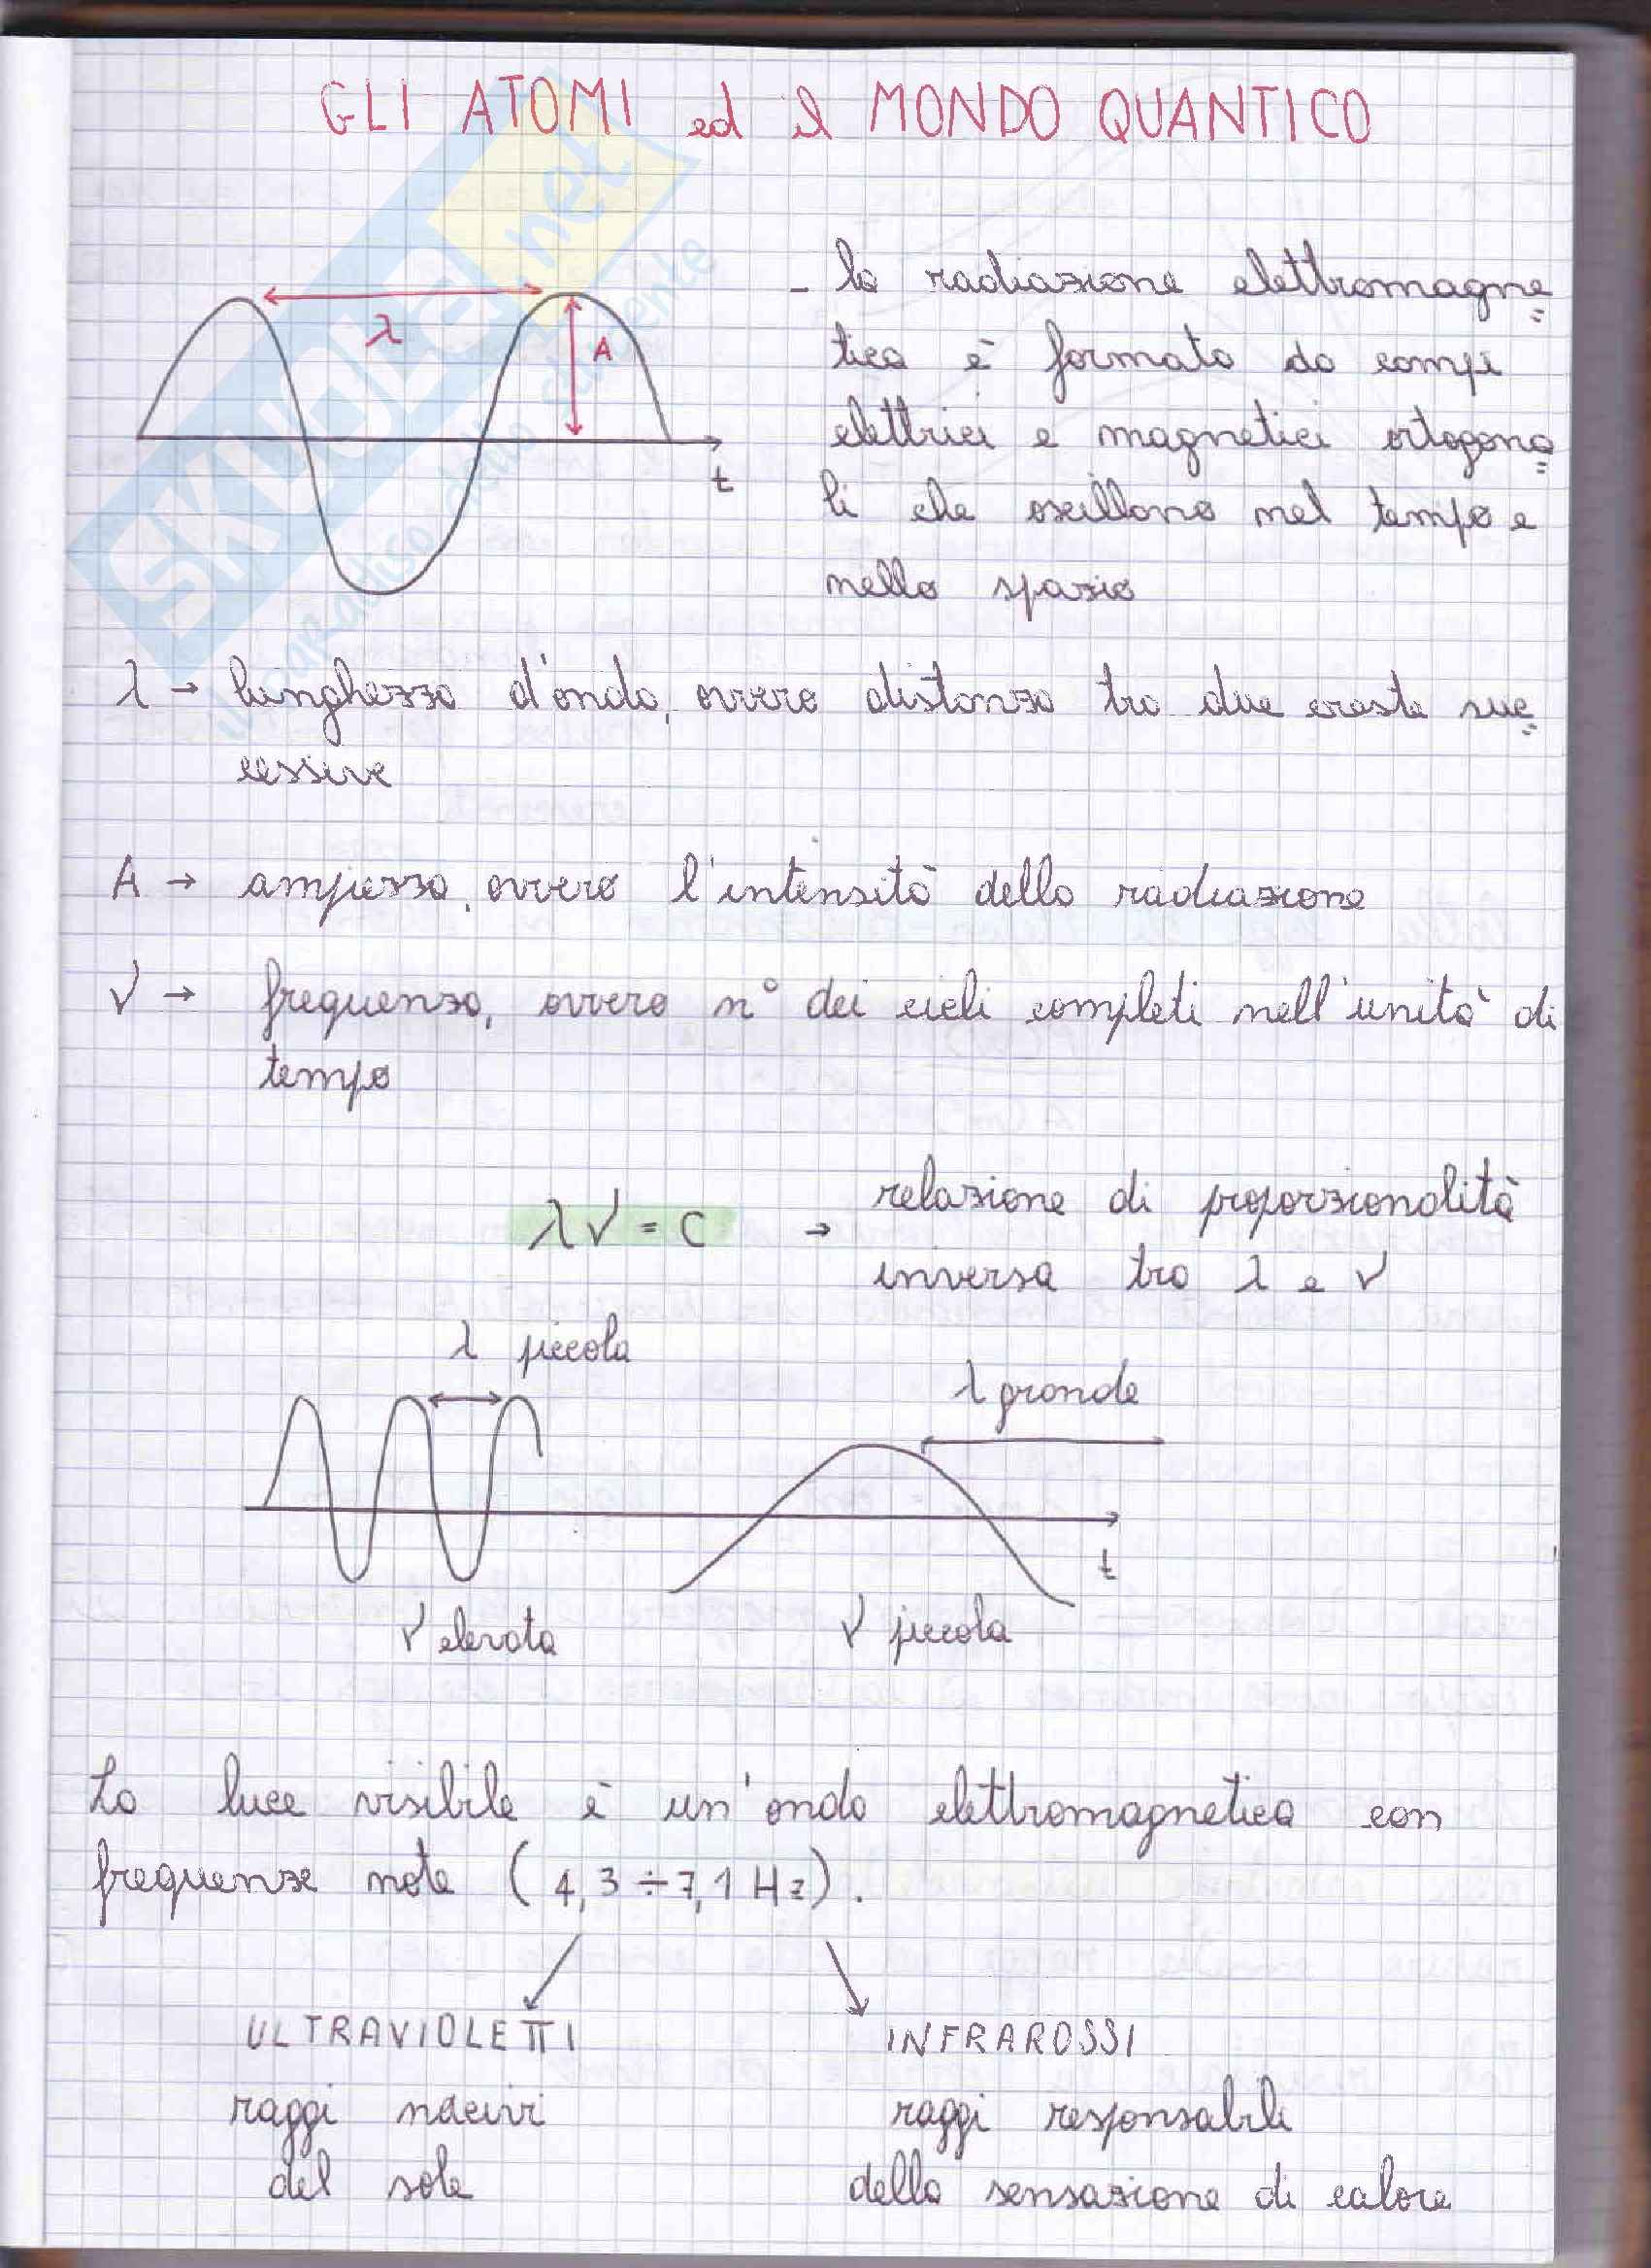 GLI ATOMI ed il MONDO QUANTICO
λ
A
t
- la radiazione elettromagne=
tica è formata da campi
elettrici e magnetici ortogona=
li che oscillano nel tempo e
nello spazio
λ → lunghezza d'onda, ovvero distanza tra due creste suc=
cessive
A → ampiezza, ovvero l'intensità della radiazione
ν → frequenza, ovvero n° dei cicli completi nell'unità di
tempo
λν = c → relazione di proporzionalità
inversa tra λ e ν
λ piccola
λ grande
t
ν elevata
ν piccola
La luce visibile è un'onda elettromagnetica con
frequenze note (4,3÷7,1 Hz).
ULTRAVIOLETTI
raggi nocivi
del sole
INFRAROSSI
raggi responsabili
della sensazione di calore
SKUOLA.net
il paradiso dello studente